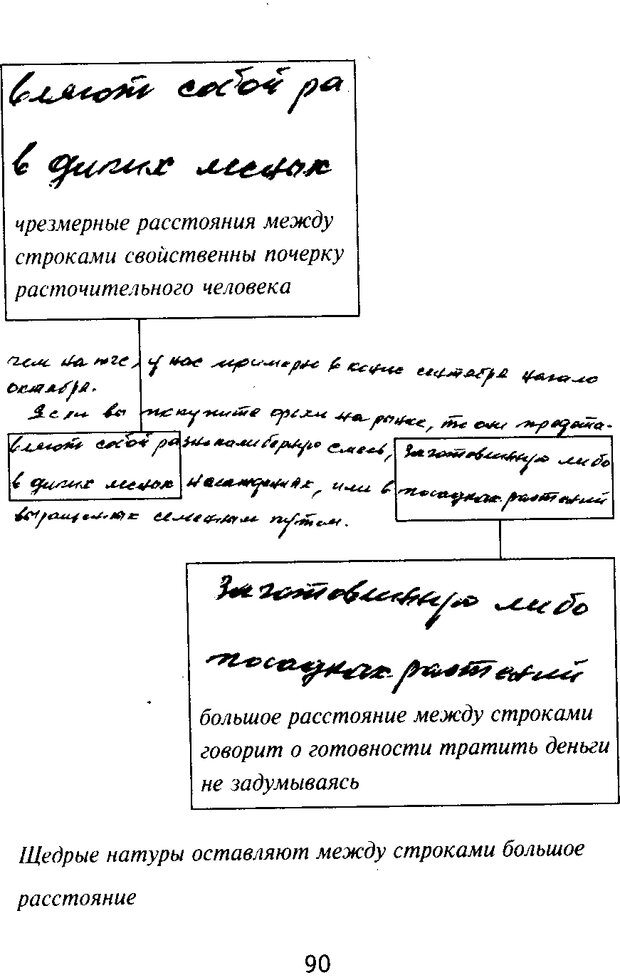 вляют собой ра
в диких лесных
чрезмерные расстояния между
строками свойственны почерку
расточительного человека
чем на юге, у нас примерно в конце сентября начало
октября.
Если вы покупите орехи на рынке, то они предста-
вляют собой разнокалиберную смесь, заготовленную либо
в диких лесных насаждениях, или в посадках растений
выращенных семенным путем.
Заготовленную либо
посадках растений
большое расстояние между строками
говорит о готовности тратить деньги
не задумываясь
Щедрые натуры оставляют между строками большое
расстояние
90